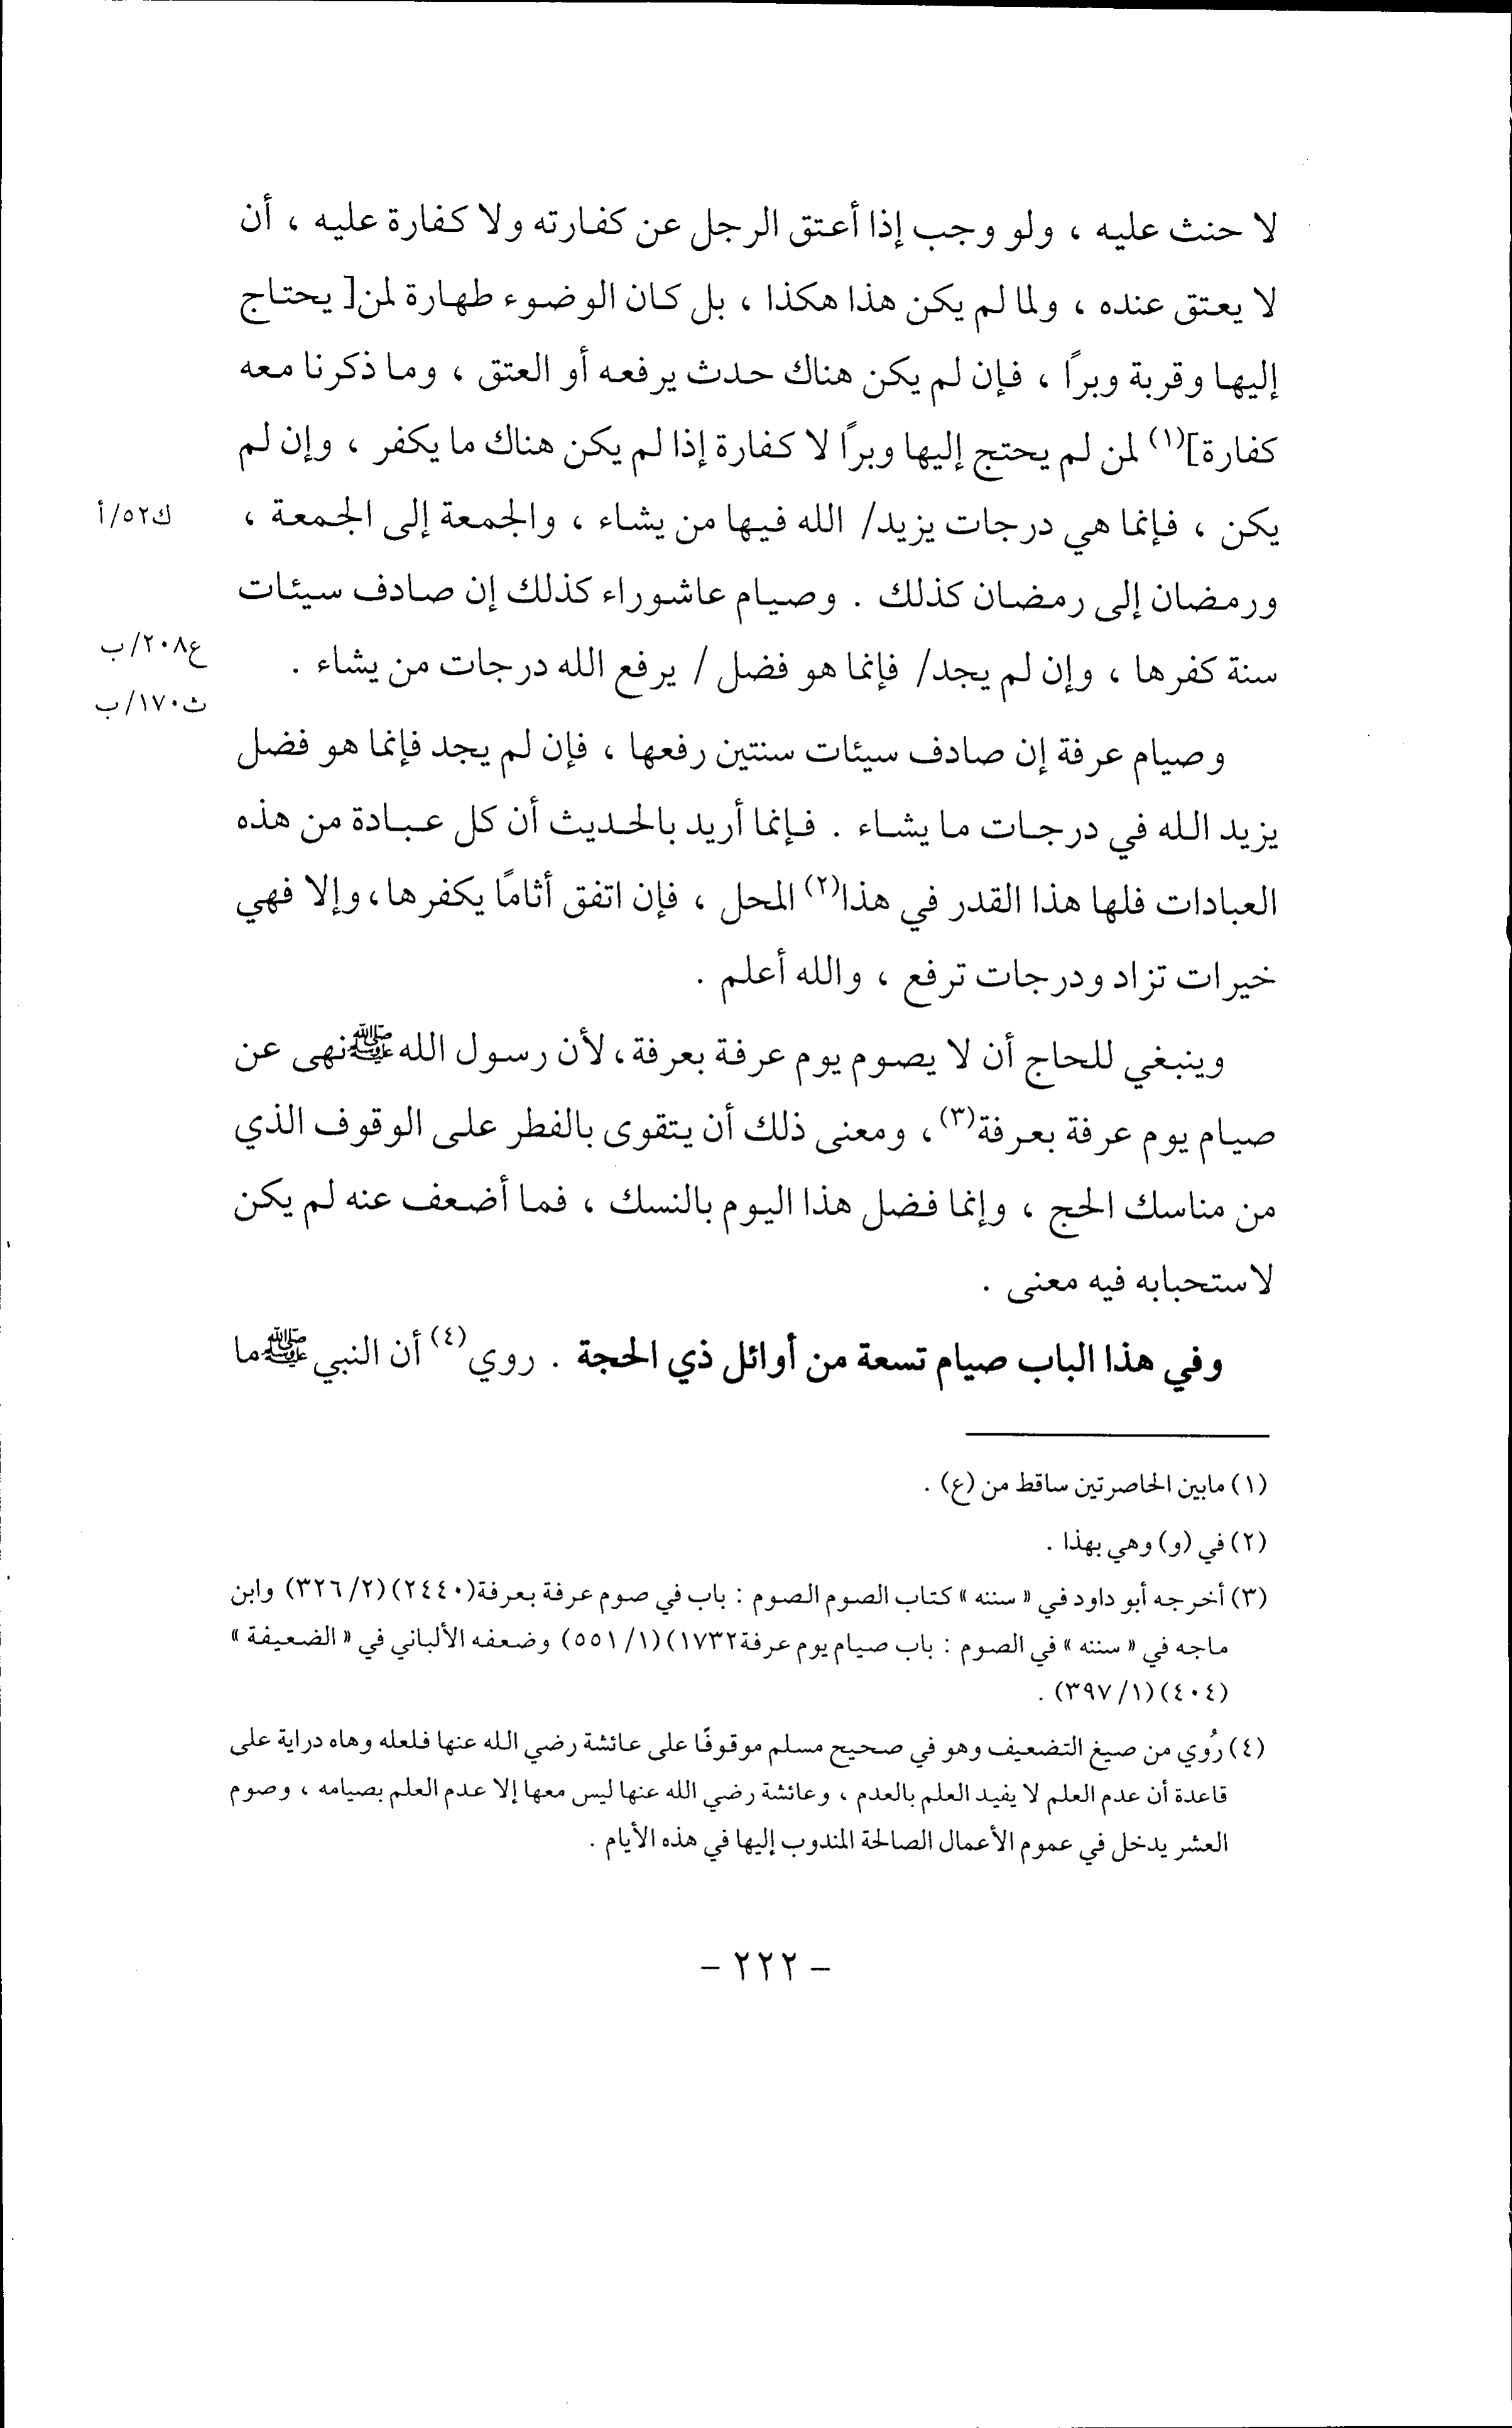 لا حنث عليه ، ولو وجب إذا أعتق الرجل عن كفارته ولا كفارة عليه ، أن
لا يعتق عنده ، ولما لم يكن هذا هكذا ، بل كان الوضوء طهارة لمن[ يحتاج
إليها وقربة وبرًا ، فإن لم يكن هناك حدث يرفعه أو العتق ، وما ذكرنا معه
كفارة](١) لمن لم يحتج إليها وبرًا لا كفارة إذا لم يكن هناك ما يكفر ، وإن لم
يكن ، فإنما هي درجات يزيد/ الله فيها من يشاء ، والجمعة إلى الجمعة ،
ك٥٢/أ
ورمضان إلى رمضان كذلك . وصيام عاشوراء كذلك إن صادف سيئات
سنة كفرها ، وإن لم يجد/ فإنما هو فضل / يرفع الله درجات من يشاء .
ع٢٠٨/ب
ث١٧٠/ب
وصيام عرفة إن صادف سيئات سنتين رفعها ، فإن لم يجد فإنما هو فضل
يزيد الله في درجات ما يشاء . فإنما أريد بالحديث أن كل عبادة من هذه
العبادات فلها هذا القدر في هذا(٢) المحل ، فإن اتفق أثامًا يكفرها، وإلا فهي
خيرات تزاد ودرجات ترفع ، والله أعلم .
وينبغي للحاج أن لا يصوم يوم عرفة بعرفة، لأن رسول الله ﷺ نهى عن
صيام يوم عرفة بعرفة(٣)، ومعنى ذلك أن يتقوى بالفطر على الوقوف الذي
من مناسك الحج ، وإنما فضل هذا اليوم بالنسك ، فما أضعف عنه لم يكن
لاستحبابه فيه معنى .
وفي هذا الباب صيام تسعة من أوائل ذي الحجة . روي(٤) أن النبي ﷺ ما
(١) مابين الحاصرتين ساقط من (ع) .
(٢) في (و) وهي بهذا .
(٣) أخرجه أبو داود في « سننه » كتاب الصوم الصوم : باب في صوم عرفة بعرفة(٢٤٤٠)(٣٢٦/٢) وابن
ماجه في « سننه » في الصوم : باب صيام يوم عرفة١٧٣٢)(٥٥١/١) وضعفه الألباني في « الضعيفة »
(٤٠٤)(٣٩٧/١) .
(٤) رُوي من صيغ التضعيف وهو في صحيح مسلم موقوفًا على عائشة رضي الله عنها فلعله وهاه دراية على
قاعدة أن عدم العلم لا يفيد العلم بالعدم ، وعائشة رضي الله عنها ليس معها إلا عدم العلم بصيامه ، وصوم
العشر يدخل في عموم الأعمال الصالحة المندوب إليها في هذه الأيام .
- ٢٢٢ -